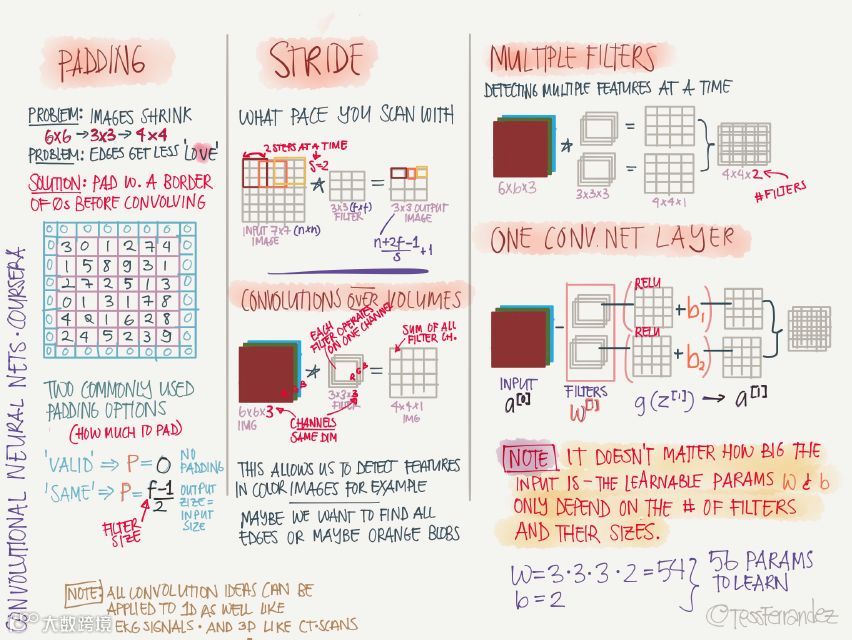 CONVOLUTIONAL NEURAL NETS · COURSERA
PADDING
PROBLEM: IMAGES SHRINK
6x6 → 3x3 → 4x4
PROBLEM: EDGES GET LESS 'LOVE'
SOLUTION: PAD W. A BORDER
OF 0s BEFORE CONVOLVING
0 0 0 0 0 0 0 0
0 3 0 1 2 7 4 0
0 1 5 8 9 3 1 0
0 2 7 2 5 1 3 0
0 0 1 3 1 7 8 0
0 4 2 1 6 2 8 0
0 2 4 5 2 3 9 0
0 0 0 0 0 0 0 0
TWO COMMONLY USED
PADDING OPTIONS
(HOW MUCH TO PAD)
'VALID' ⇒ P = 0 NO PADDING
'SAME' ⇒ P = f-1/2 OUTPUT SIZE = INPUT SIZE
FILTER
SIZE
NOTE: ALL CONVOLUTION IDEAS CAN BE
APPLIED TO 1D AS WELL LIKE
EKG SIGNALS · AND 3D LIKE CT-SCANS
大数跨境
STRIDE
WHAT PACE YOU SCAN WITH
2 STEPS AT A TIME
S=2
* =
INPUT 7x7 (n×n)
IMAGE
3x3 (f×f)
FILTER
3x3 OUTPUT
IMAGE
n+2f-1/s +1
CONVOLUTIONS OVER VOLUMES
EACH
FILTER OPERATES
ON ONE CHANNEL
SUM OF ALL
FILTER CH.
R G B
R G B
* =
6x6x3
IMG
3x3x3
FILTER
4x4x1
IMG
CHANNELS
SAME DIM
THIS ALLOWS US TO DETECT FEATURES
IN COLOR IMAGES FOR EXAMPLE
MAYBE WE WANT TO FIND ALL
EDGES OR MAYBE ORANGE BLOBS
MULTIPLE FILTERS
DETECTING MULTIPLE FEATURES AT A TIME
* = =
6x6x3
3x3x3
4x4x1
4x4x2
# FILTERS
ONE CONV. NET LAYER
RELU ( + b1 )
RELU ( + b2 )
INPUT
a[0]
FILTERS
W[1]
g(z[1]) → a[1]
NOTE IT DOESN'T MATTER HOW BIG THE
INPUT IS - THE LEARNABLE PARAMS W & b
ONLY DEPEND ON THE # OF FILTERS
AND THEIR SIZES.
W = 3·3·3·2 = 54
b = 2
56 PARAMS
TO LEARN
@TessFerrandez